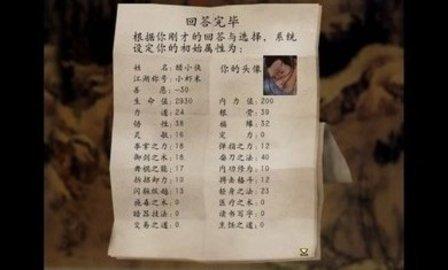 回答完毕
根据你刚才的回答与选择,系统
设定你的初始属性为:
姓 名:醋小侠 你的头像
江湖称号:小虾米
善 恶:-30
生 命 值:2930 内 力 值:200
力 道:24 根 骨:39
悟 性:38 福 缘:32
灵 敏:16 定 力:0
拳掌之力:18 弹指之力:12
御剑之术:18 磨刀之法:40
舞棍之能:17 内功修为:10
招招卸力:0 搏击格斗:12
闪躲纵越:13 轻身之法:23
施毒之术:0 医疗之术:0
暗器技法:0 读书写字:0
交易之道:0 烹饪之道:0